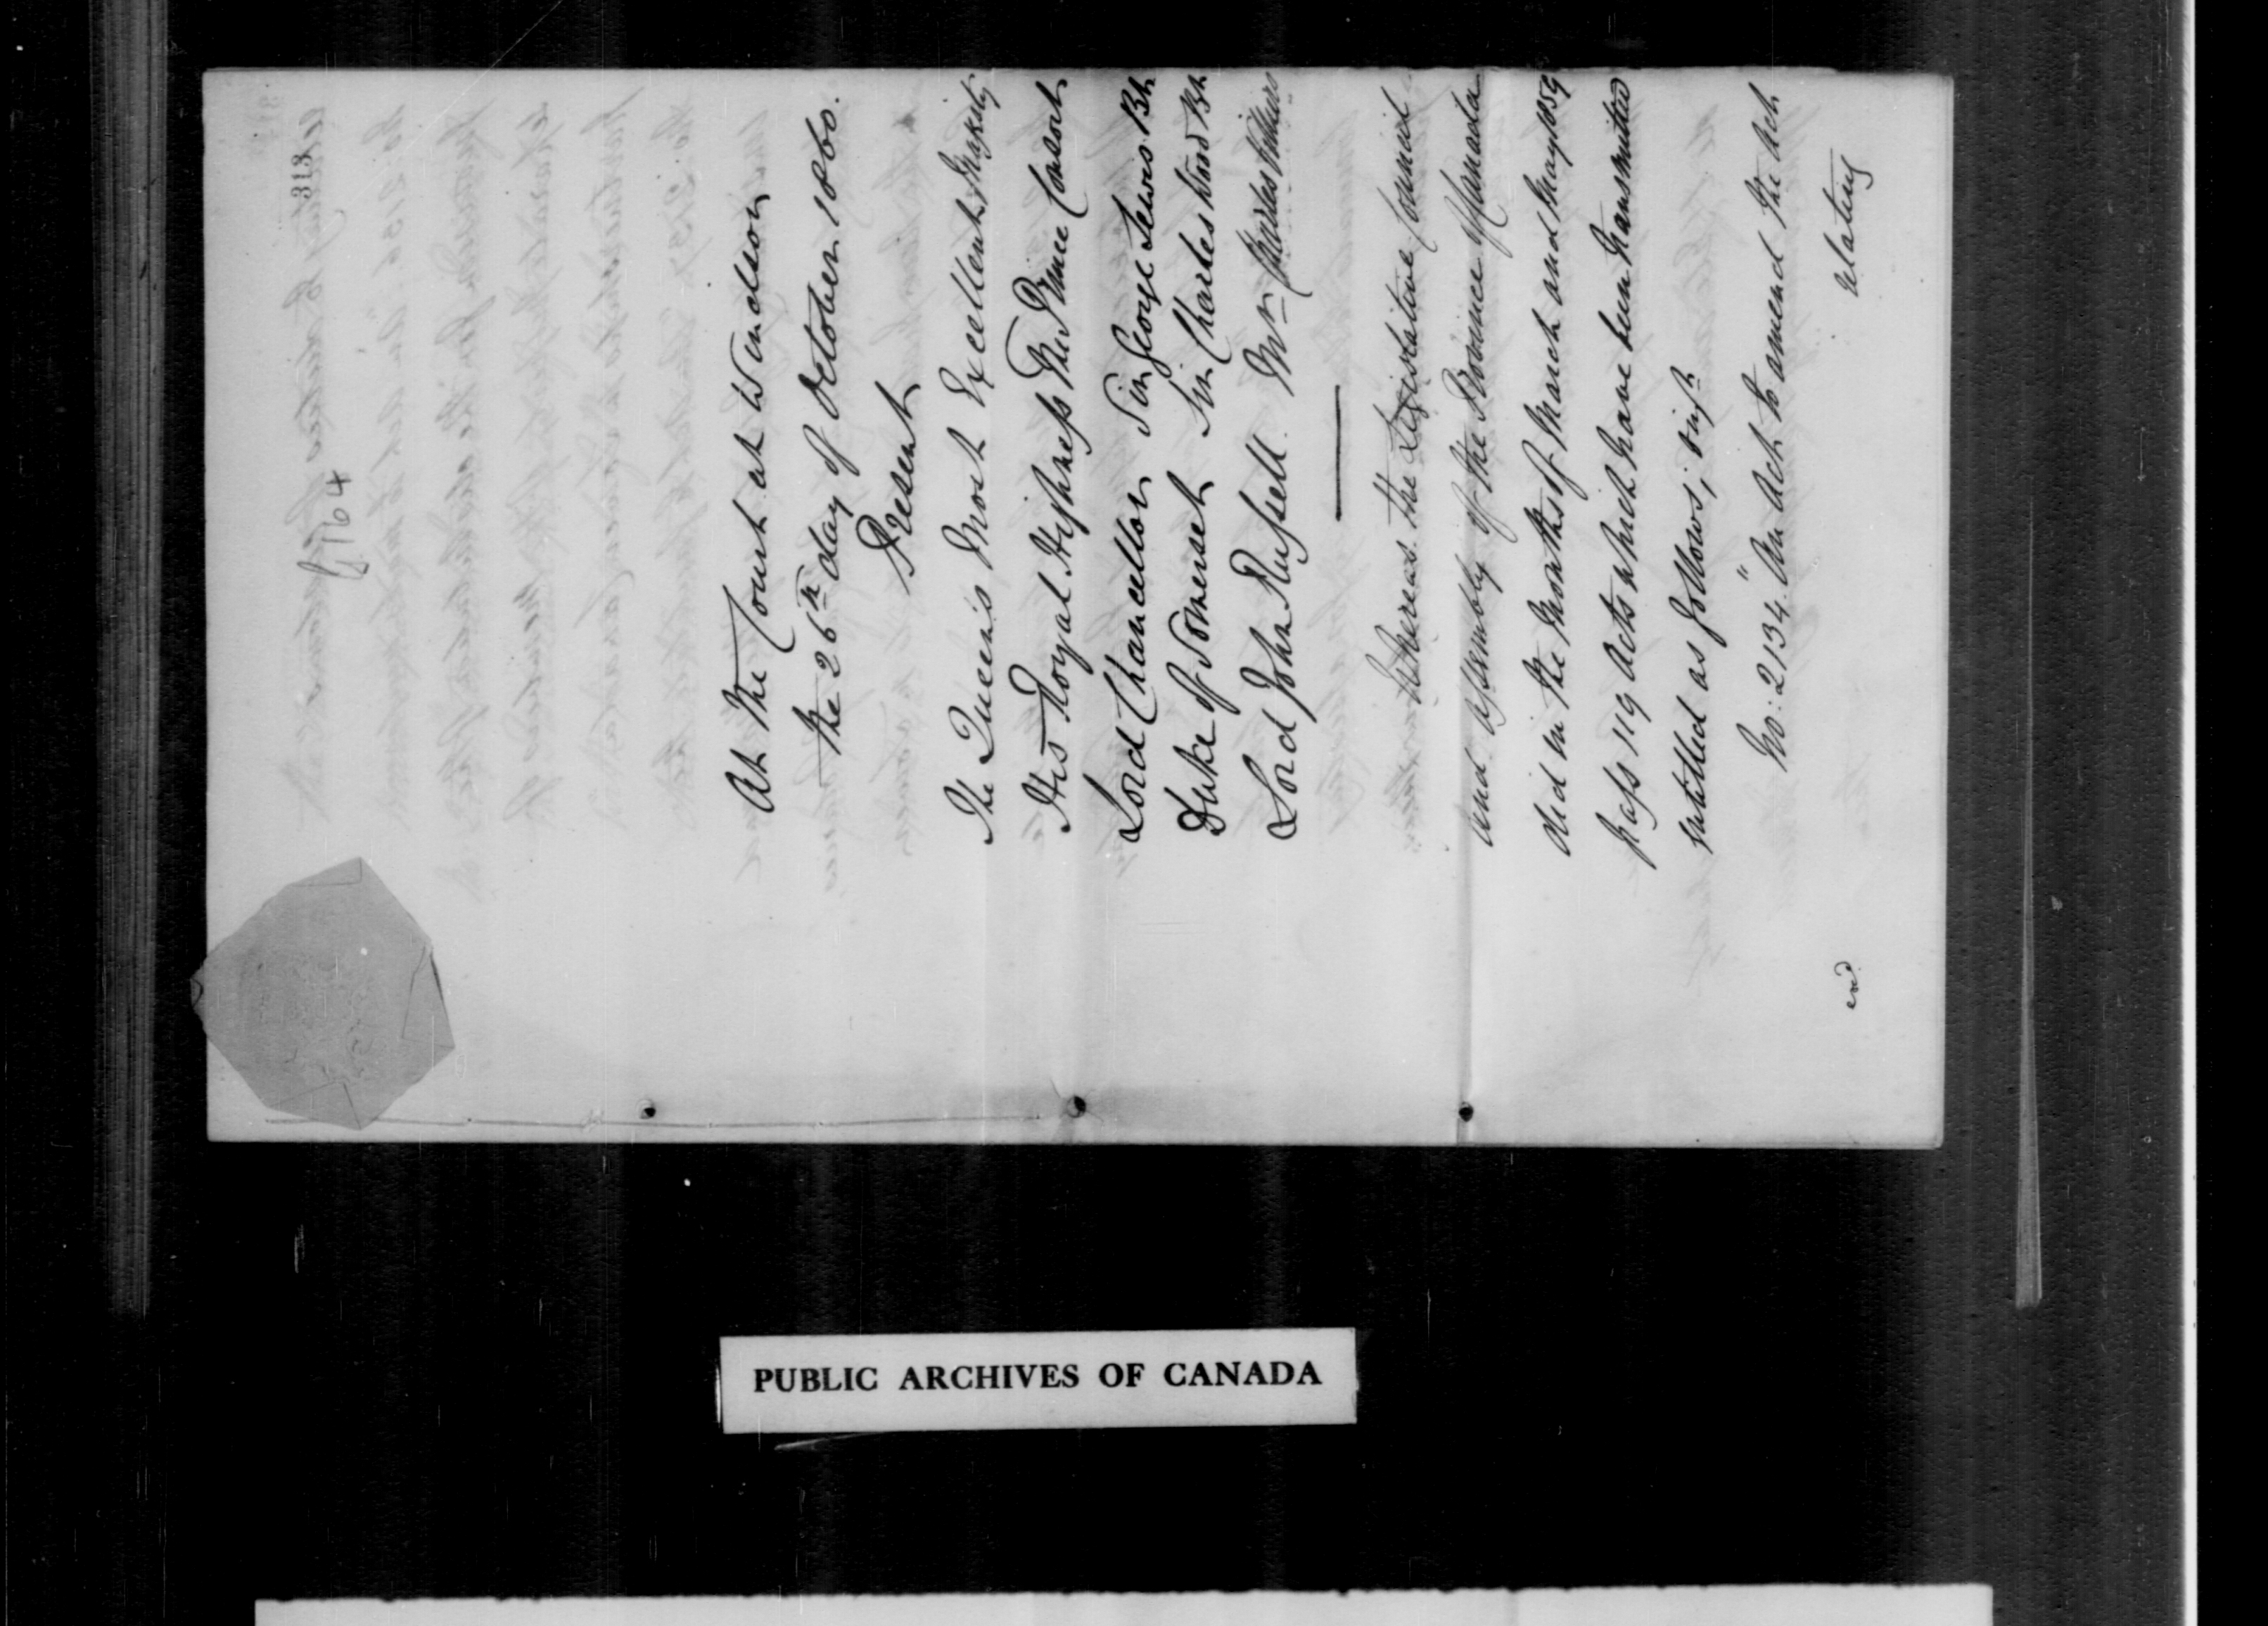 313
At the Court at Windsor
the 26th day of October 1860.
Present
The Queen's Most Excellent Majesty
His Royal Highness The Prince Consort
Lord Chancellor Sir George Lewis Bt.
Duke of Somerset Sir Charles Wood Bt.
Lord John Russell Mr Charles Villiers
Whereas the Legislative Council
and Assembly of the Province of Canada
did in the Months of March and May 1859
pass 119 Acts which have been transmitted
entitled as follows; vizt.
No: 2134. "An Act to amend the Act
relating
PUBLIC ARCHIVES OF CANADA